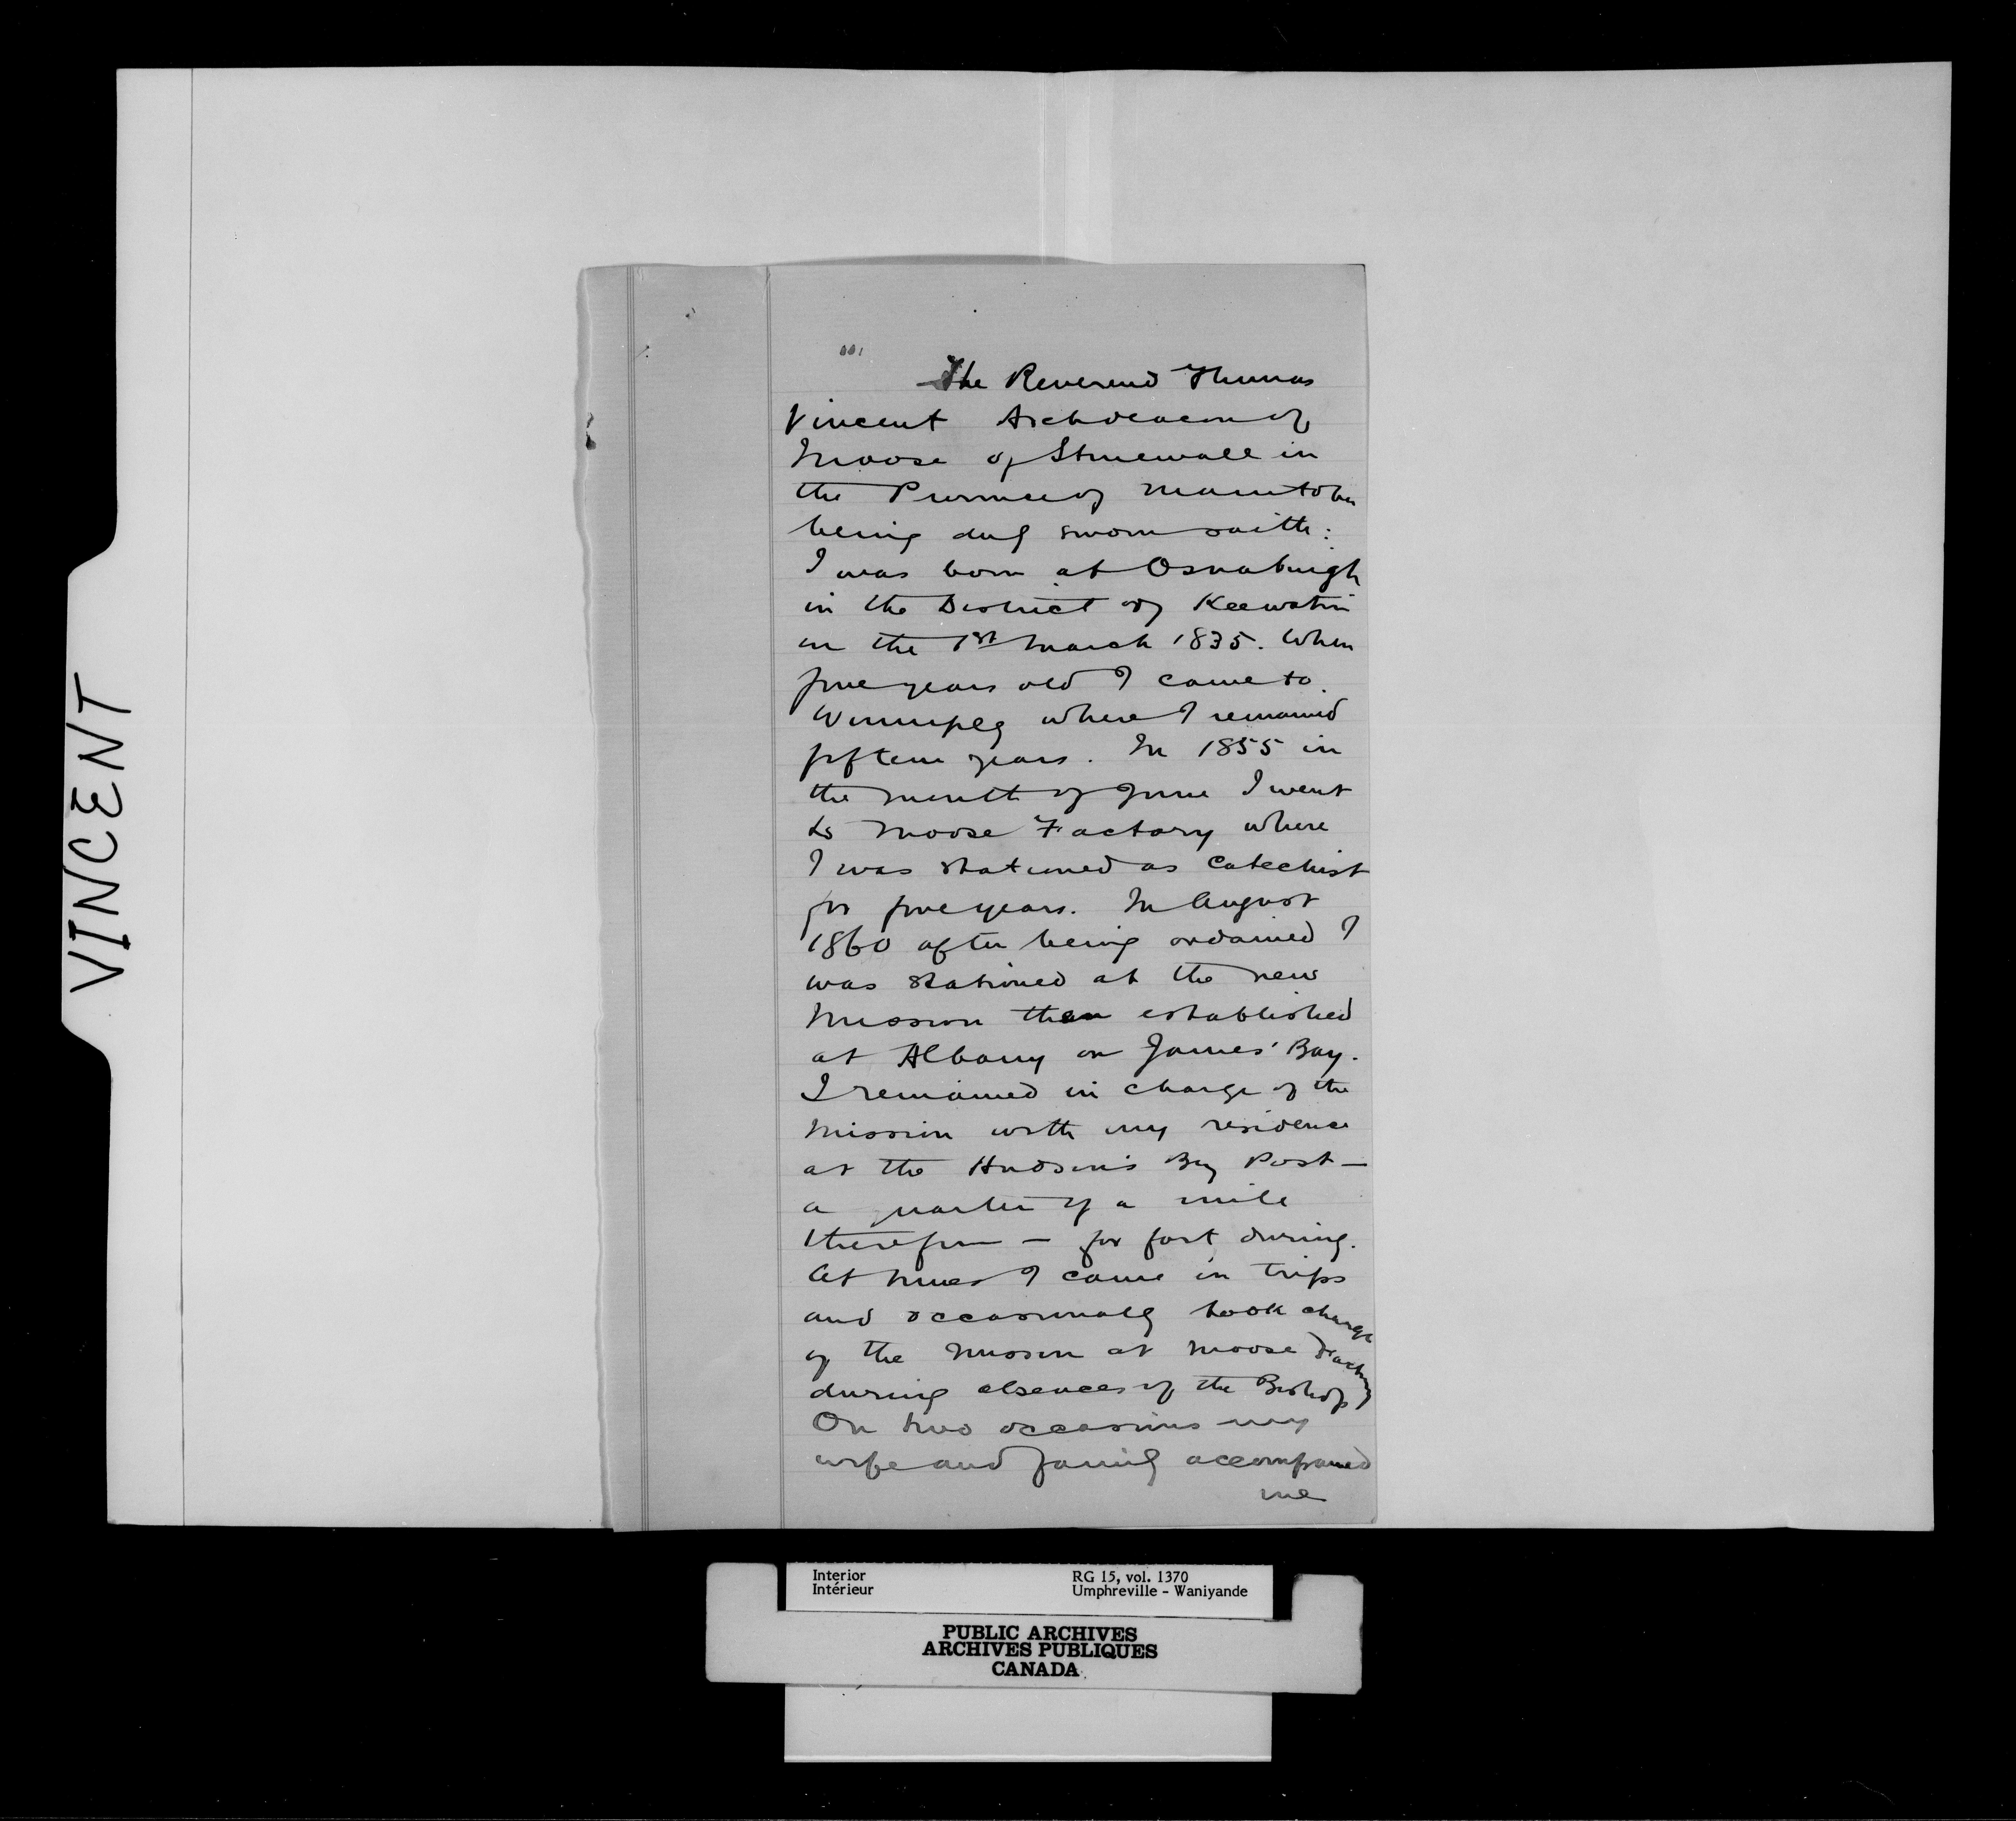 VINCENT
The Reverend Thomas
Vincent Archdeacon of
Moose of Stonewall in
the Province of Manitoba
being duly sworn saith:
I was born at Osnaburgh
in the District of Keewatin
on the 1st March 1835. When
five years old I came to
Winnipeg where I remained
fifteen years. In 1855 in
the month of June I went
to Moose Factory where
I was stationed as Catechist
for five years. In August
1860 after being ordained I
was stationed at the new
Mission then established
at Albany on James' Bay.
I remained in charge of the
Mission with my residence
at the Hudson's Bay Post —
a quarter of a mile
therefrom — for
At times I came in trips
and occasionally took charge
of the Mission at Moose Factory
during absences of the Bishop
On two occasions my
wife and family accompanied
me
Interior
Intérieur
RG 15, vol. 1370
Umphreville - Waniyande
PUBLIC ARCHIVES
ARCHIVES PUBLIQUES
CANADA